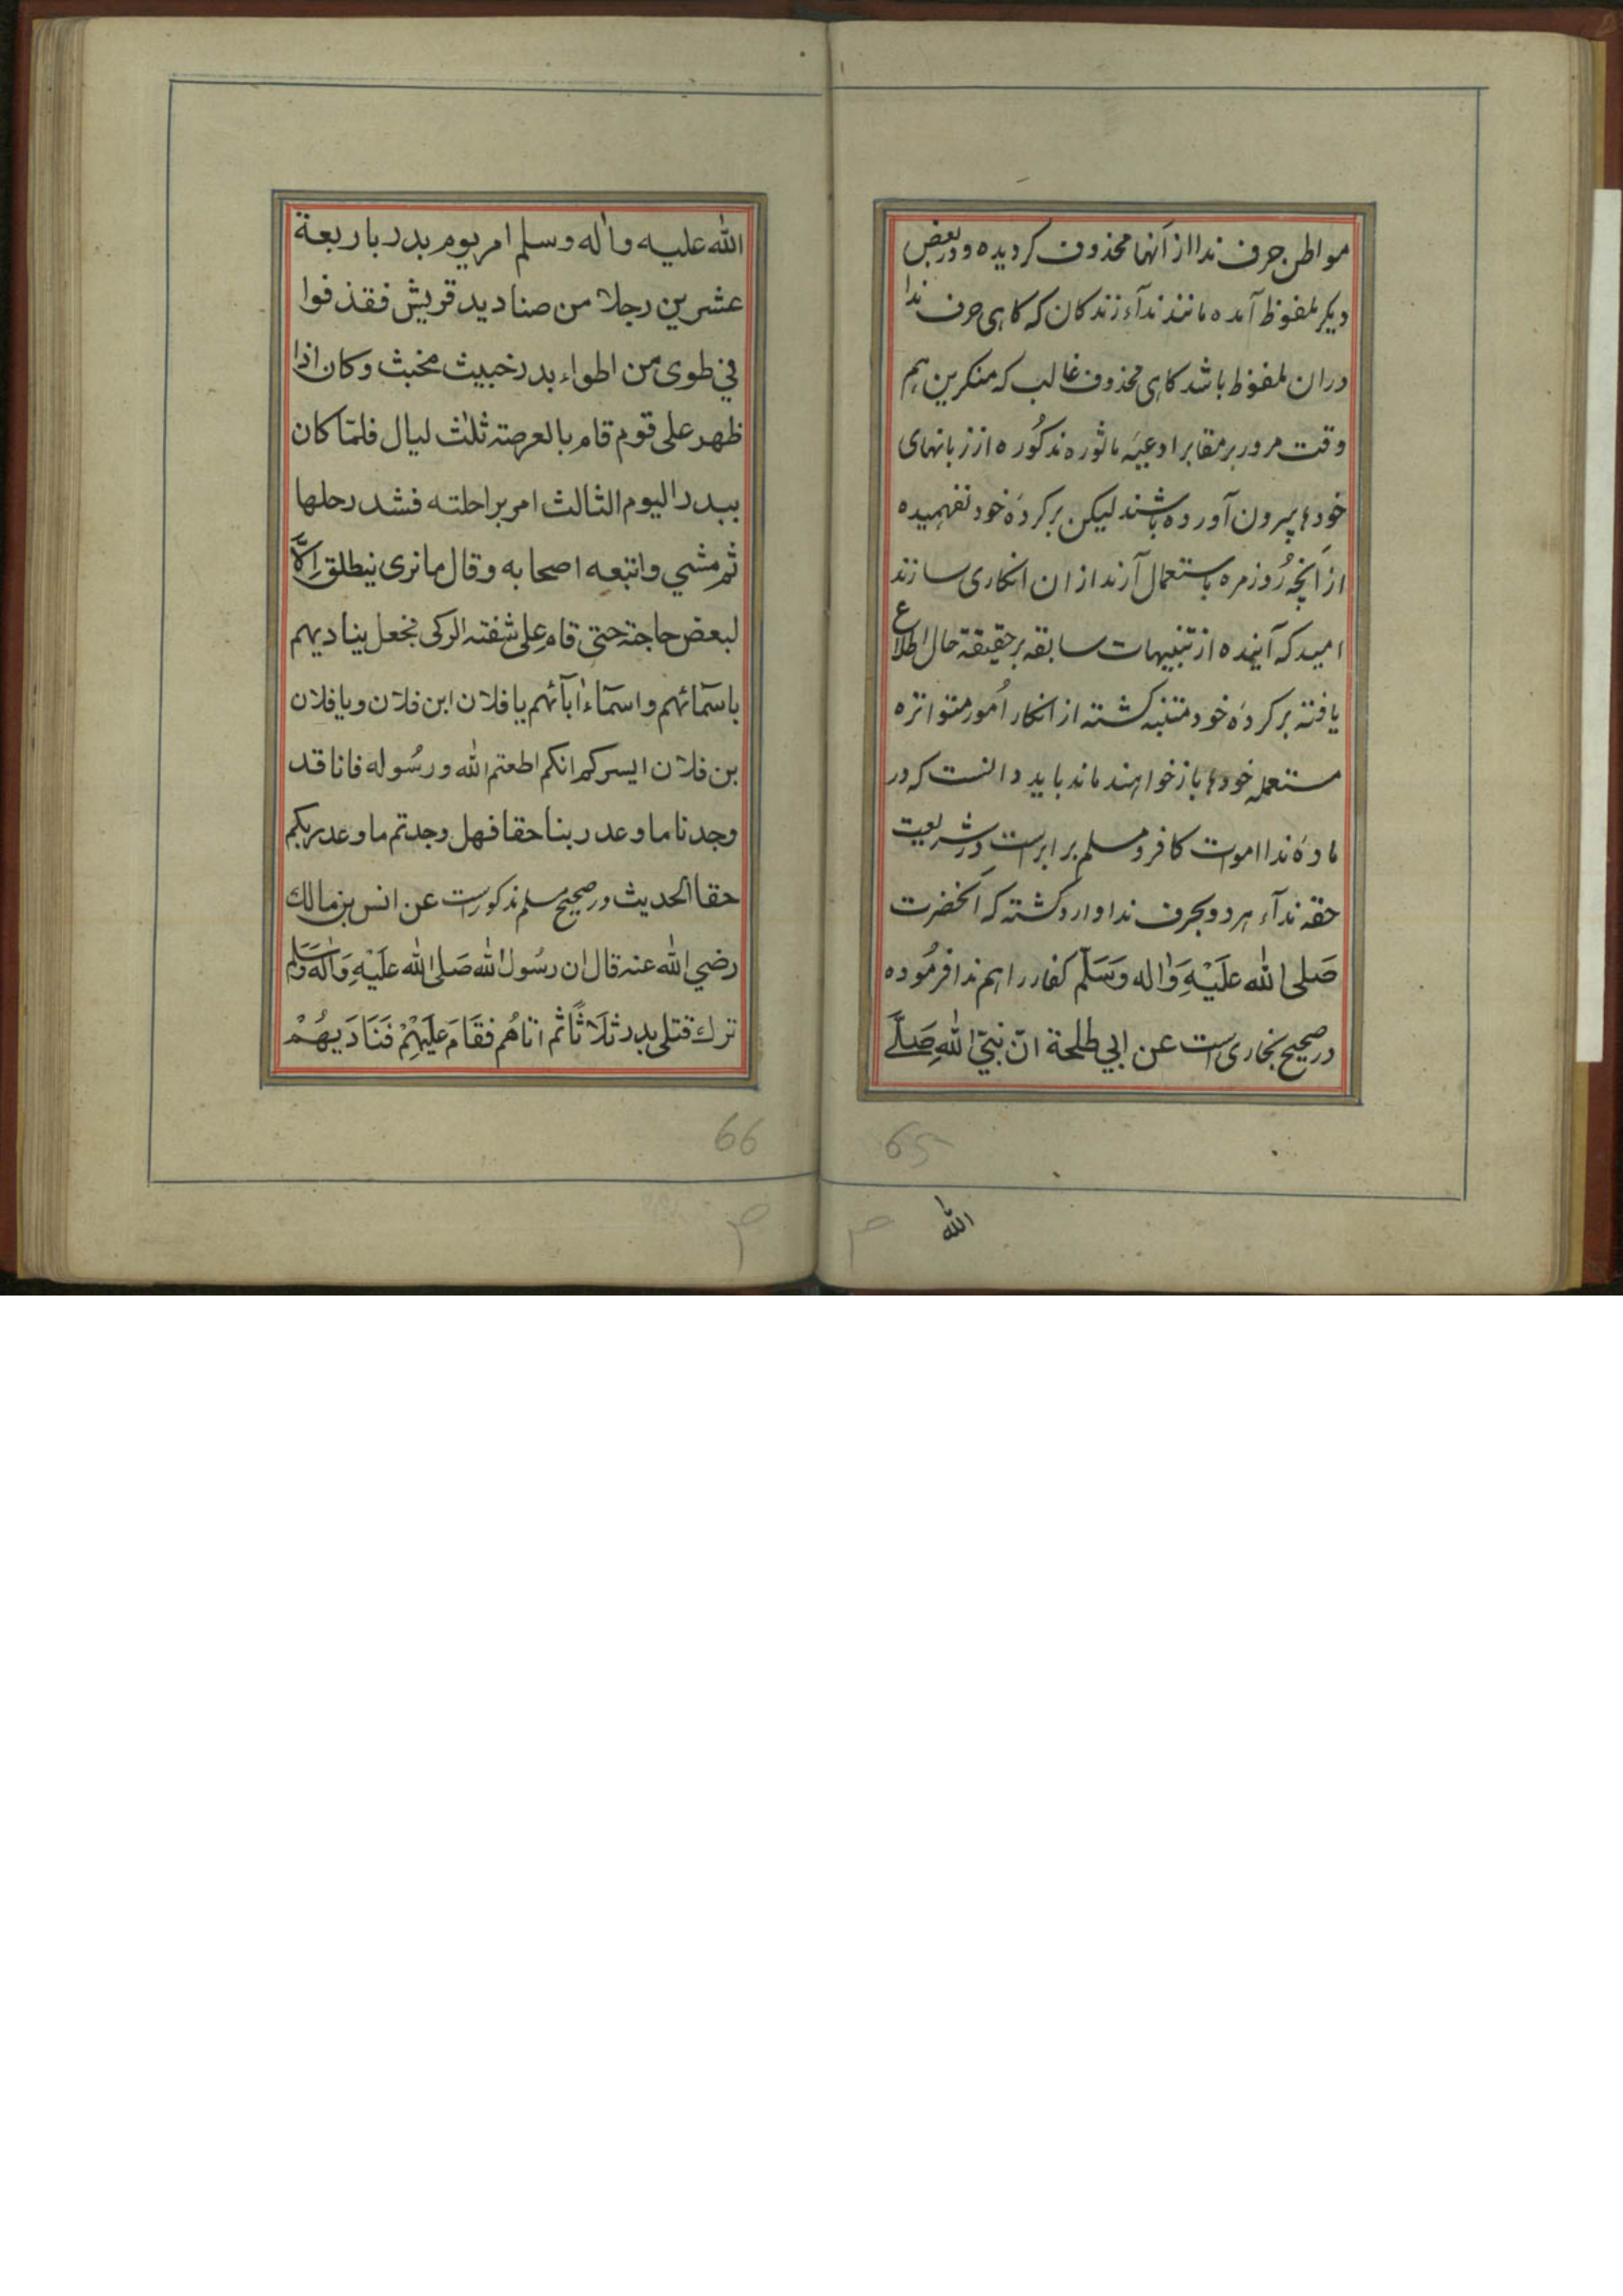 مواطن حرف ندا از آنها محذوف کردیده و در بعض
دیکر ملفوظ آمده مانند ندآء زندکان که کاهی حرف ندا
دران ملفوظ باشد کاهی محذوف غالب که منکرین هم
وقت مرور بر مقابر ادعیهٔ ماثوره مذکُوره از زبانهای
خودها بیرون آورده باشند لیکن بر کردهٔ خود نفهمیده
از آنچه رُوزمره باستعمال آرند ازان انکاری سازند
امید که آینده از تنبیهات سابقه بر حقیقة حال اطلاع
یافته بر کردهٔ خود متنبه کشته از انکار اُمور متواتره
مستعمله خودها باز خواهند ماند باید دانست که در
مادهٔ ندا اموات کافر و مسلم برابر است در شریعت
حقه ندآء هر دو بحرف ندا وارد کشته که آنحضرت
صَلی الله عَلَیْهِ وَاٰله وَسَلّم کفار را هم ندا فرمُوده
در صحیح بخاری است عن ابي طلحة انّ نبيّ اللهِ صَلَّے
65
الله
الله عليه واٰله وسلم امر يوم بدر باربعة
عشرين رجلا من صناديد قريش فقذفوا
في طوى من اطواء بدر خبيث مخبث وكان اذا
ظهر على قوم قام بالعرصة ثلٰث ليال فلمّا كان
ببدر اليوم الثالث امر براحلته فشد رحلها
ثم مشي واتبعه اصحابه وقال ما نرى ينطلق اِلّا
لبعض حاجة حتى قام على شفته الركى فجعل يناديهم
باسمآئهم واسمآء اٰبآئهم يا فلان ابن فلان ويا فلان
بن فلان ايسركم انكم اطعتم الله ورسُوله فانا قد
وجدنا ما وعد ربنا حقا فهل وجدتم ما وعد ربكم
حقا الحديث ودر صحیح مسلم مذکورست عن انس بن مالك
رضي الله عنه قال ان رسُول الله صَلى الله عَلَيْهِ وَاٰله وَسَلم
ترك قتلى بدر ثَلَاثًا ثم اتاهُم فقَامَ عَلَيْهِمْ فَنَادَيهُمْ
66